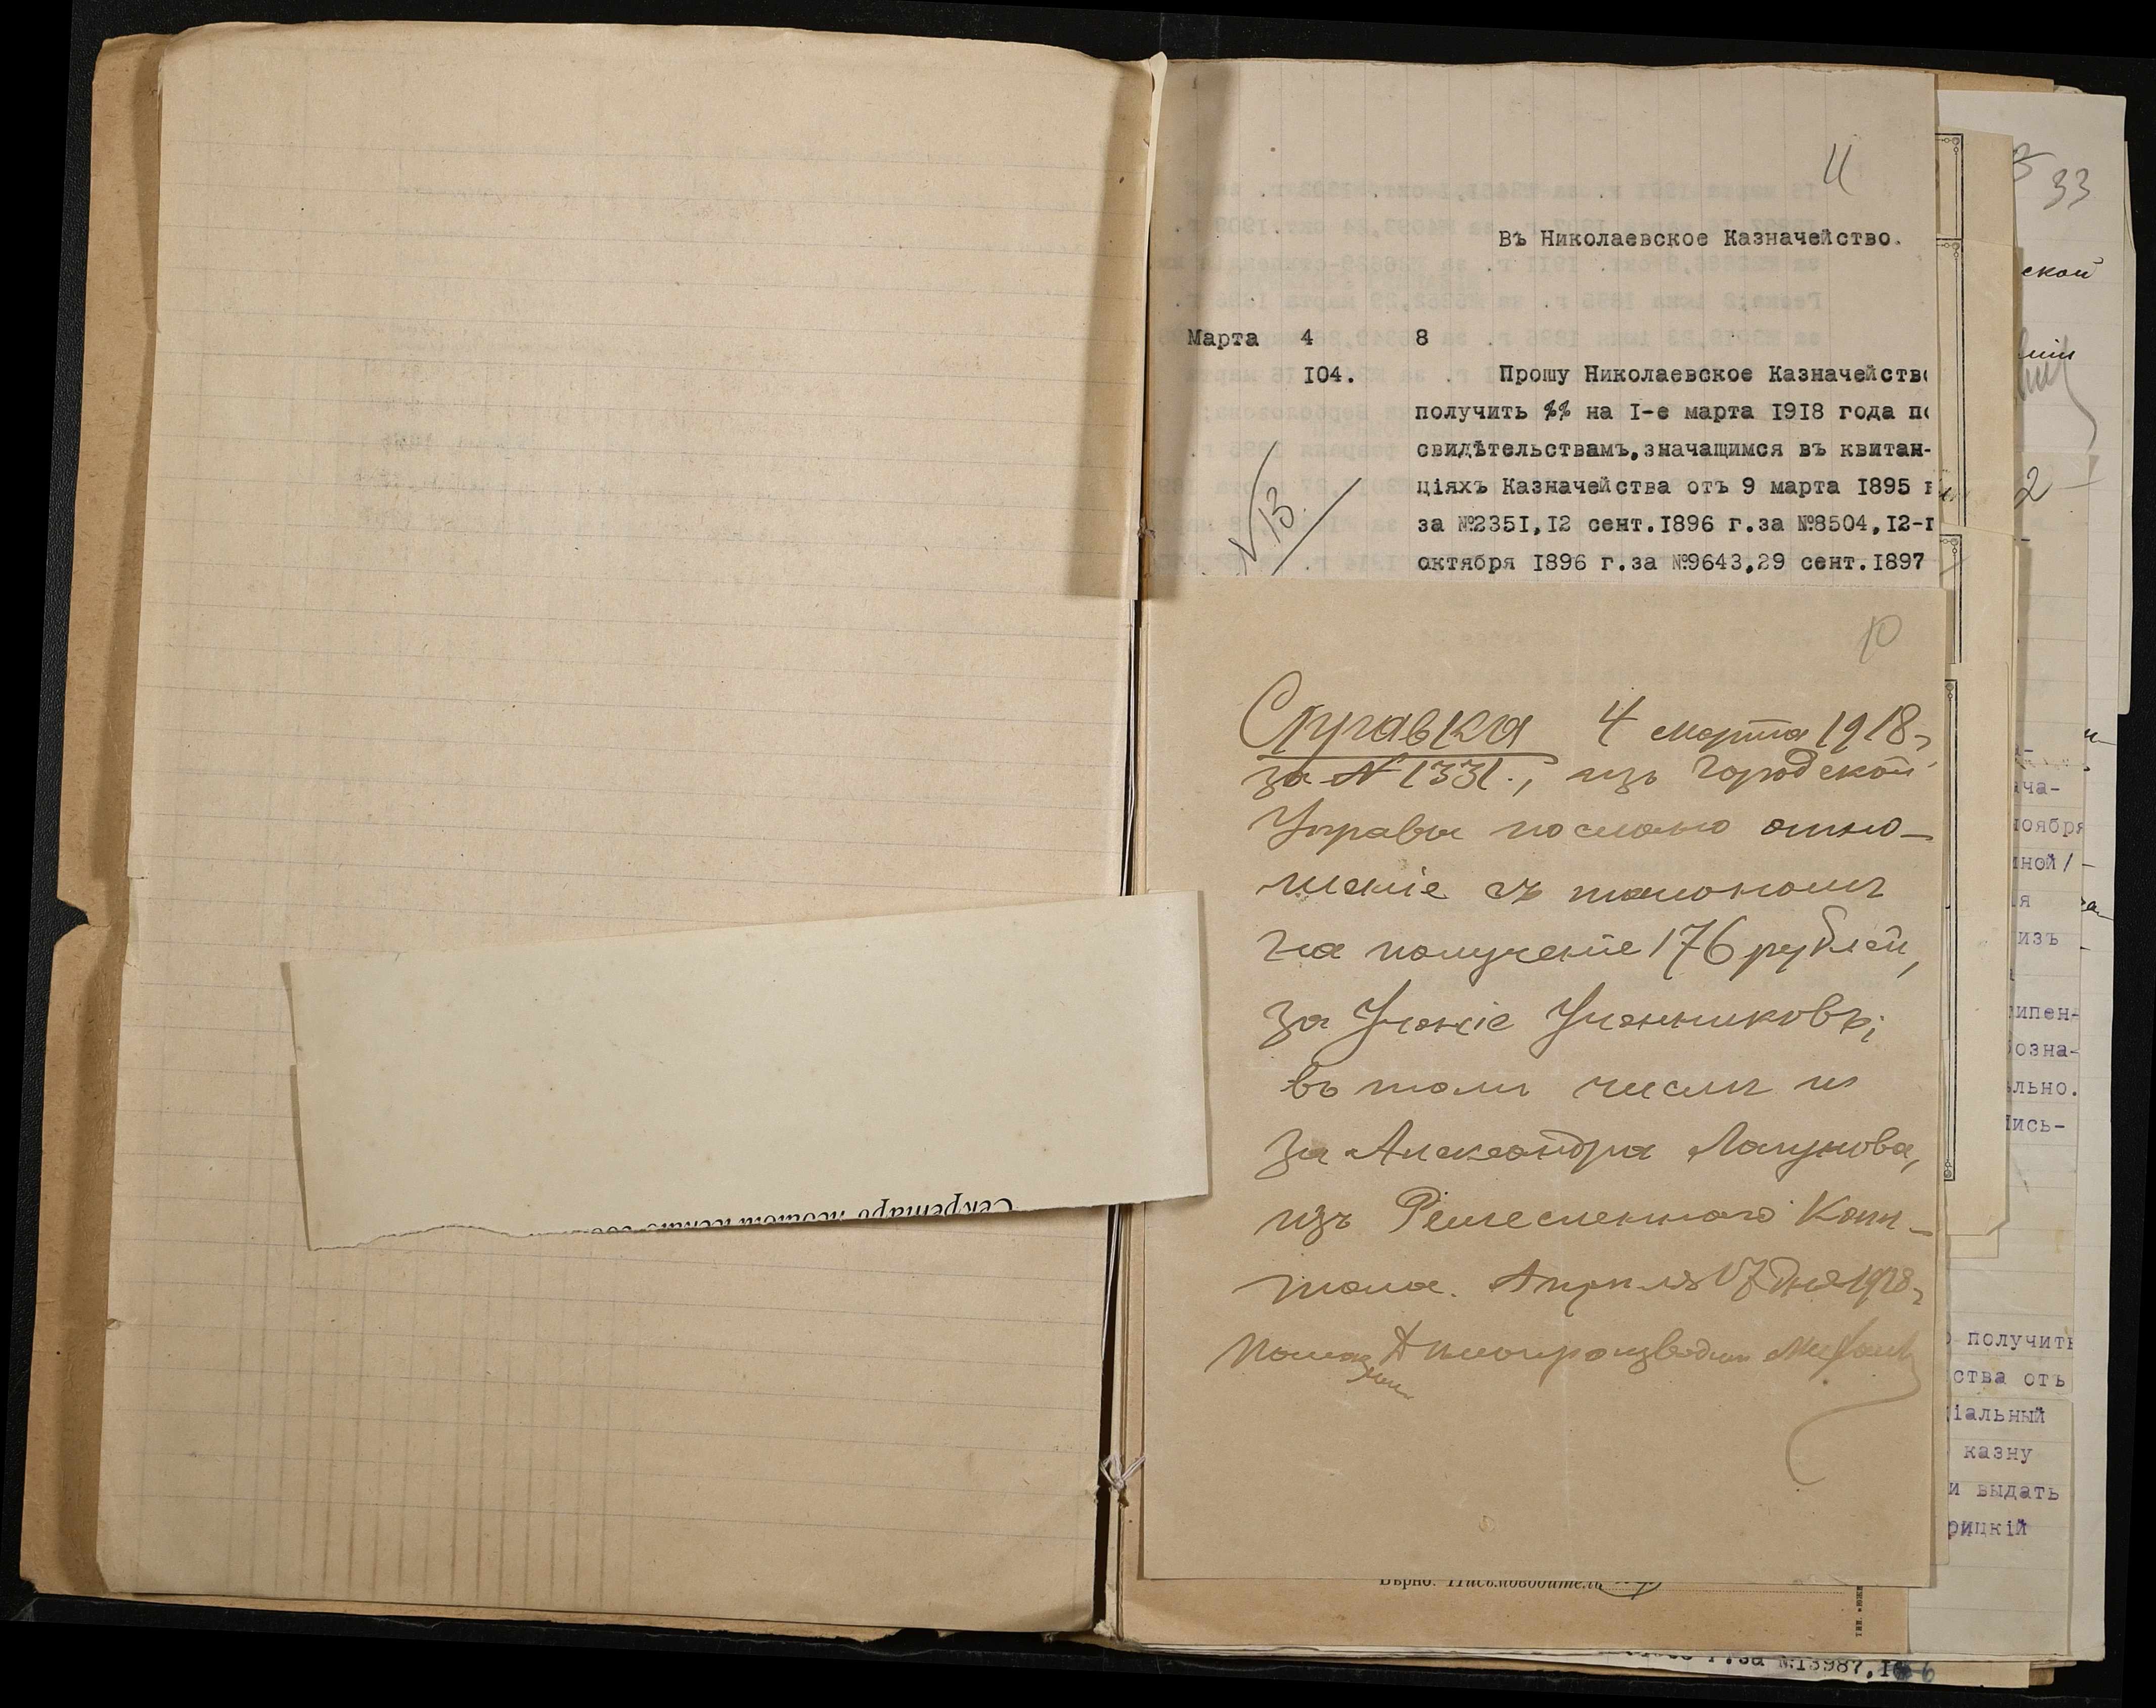 11
Въ Николаевское Казначейство.
Марта 4 8
104.
Прошу Николаевское Казначейство
получить %% на I-е марта I9I8 года по
свидѣтельствамъ,значащимся въ квитан-
ціяхъ Казначейства отъ 9 марта I895 г
за №235I,I2 сент.I896 г.за №8504,I2-г
октября I896 г.за №9643,29 сент.I897
N 13.
10
Справка 4 марта 1918 г.
за N 1331., изъ Городской
Управы послано отно-
шеніе съ талономъ
на полученіе 176 рублей,
за Ученіе Учениковъ;
въ томъ числѣ и
за Александра Лапунова,
изъ Ремесленнаго Капи-
тала. Апрѣля 17 дня 1918 г.
Помощ Дѣлопроизводит
Секретарь
Вѣрно: Письмоводитель
г.за №I3987,I
33
ской
2
ача-
ноября
нной/
ія
изъ
ипен-
бозна-
льно.
пись-
получить
ства отъ
іальный
казну
и выдать
рицкій